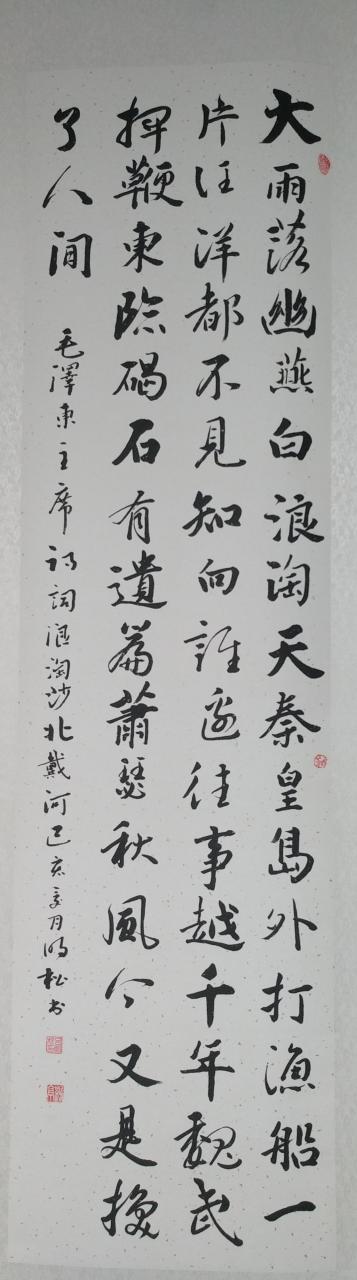 大雨落幽燕白浪淘天秦皇島外打漁船一
片汪洋都不見知向誰邊往事越千年魏武
揮鞭東臨碣石有遺篇蕭瑟秋風今又是換
了人間
毛澤東主席詩詞浪淘沙北戴河己亥夏月明松書